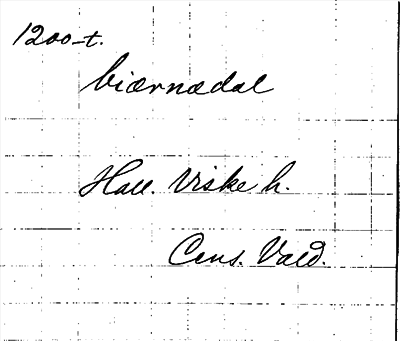 1200-t.
biærnædal
Hall. Viske h.
Cens. Vald.